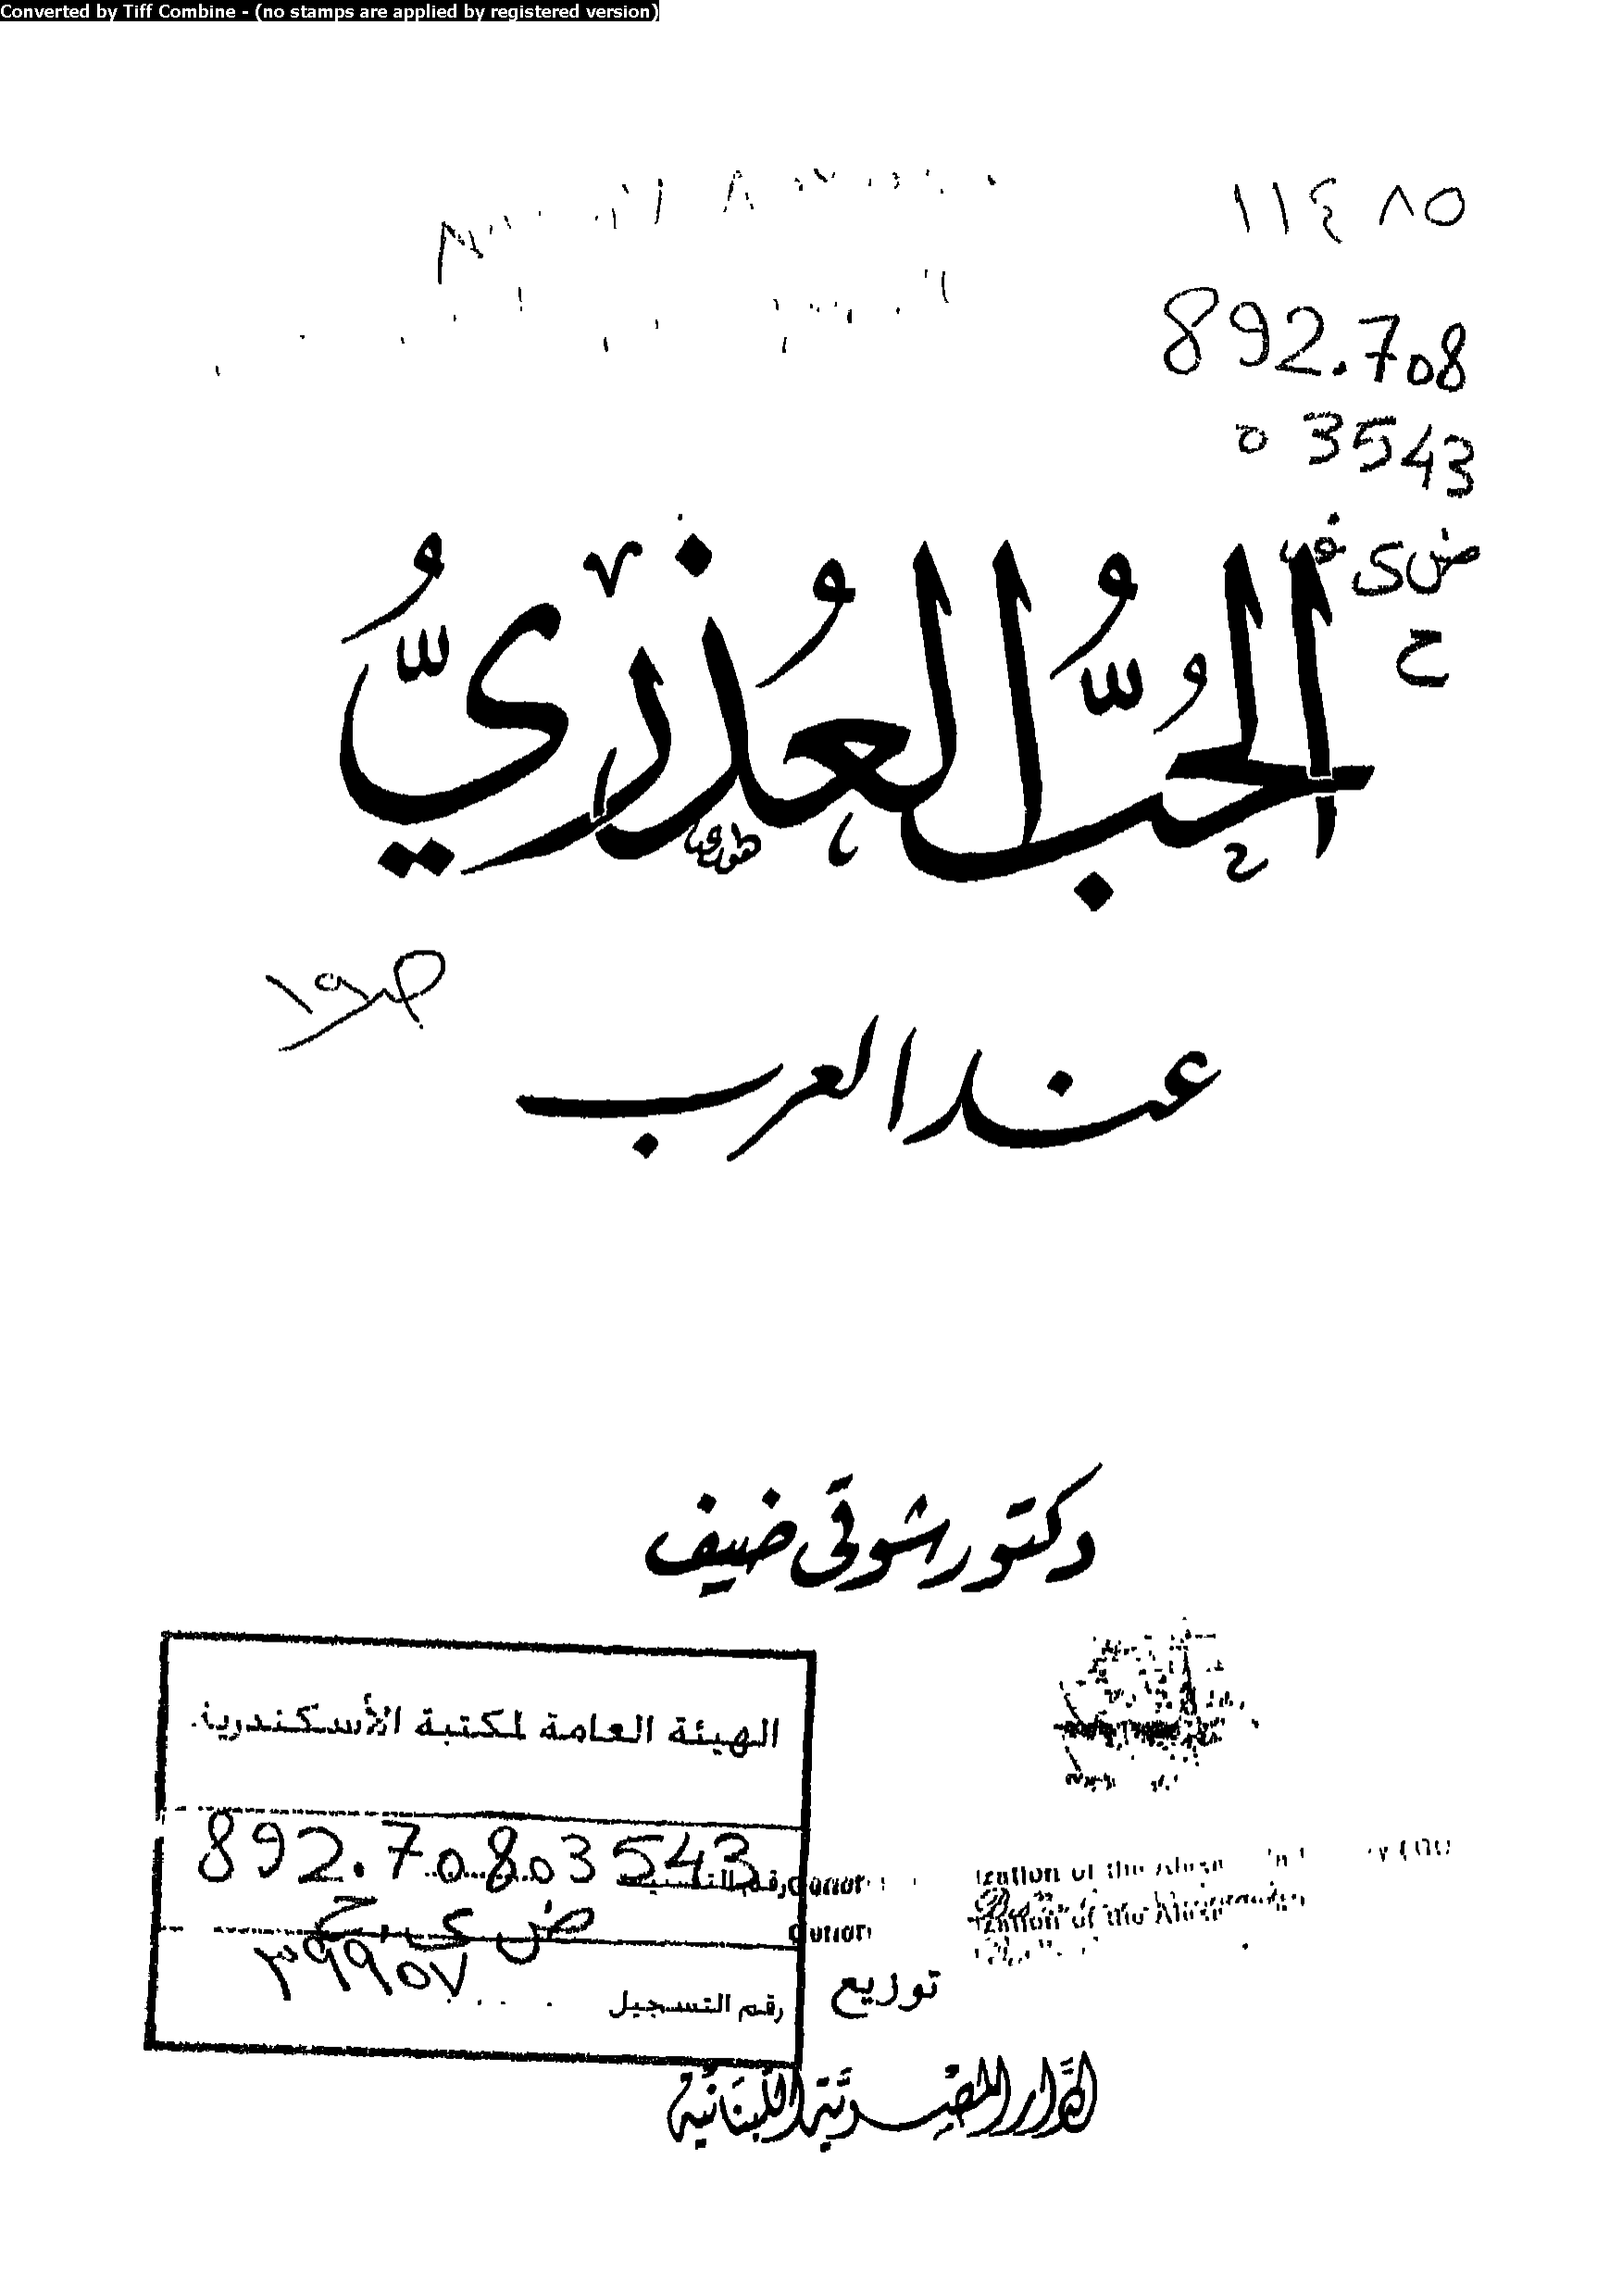 Converted by Tiff Combine - (no stamps are applied by registered version)
١١٤٨٥
892.708
03543
ض ى ف
ح
الحُبُّ العُذْرِيُّ
عند العرب
دكتور شوقى ضيف
الهيئة العامة لمكتبة الأسكندرية
892.70803543
ض ى ح
٣٩٩٥٧
رقم التسجيل
توزيع
الدَّار المصْريَّة اللُّبنَانيَّة